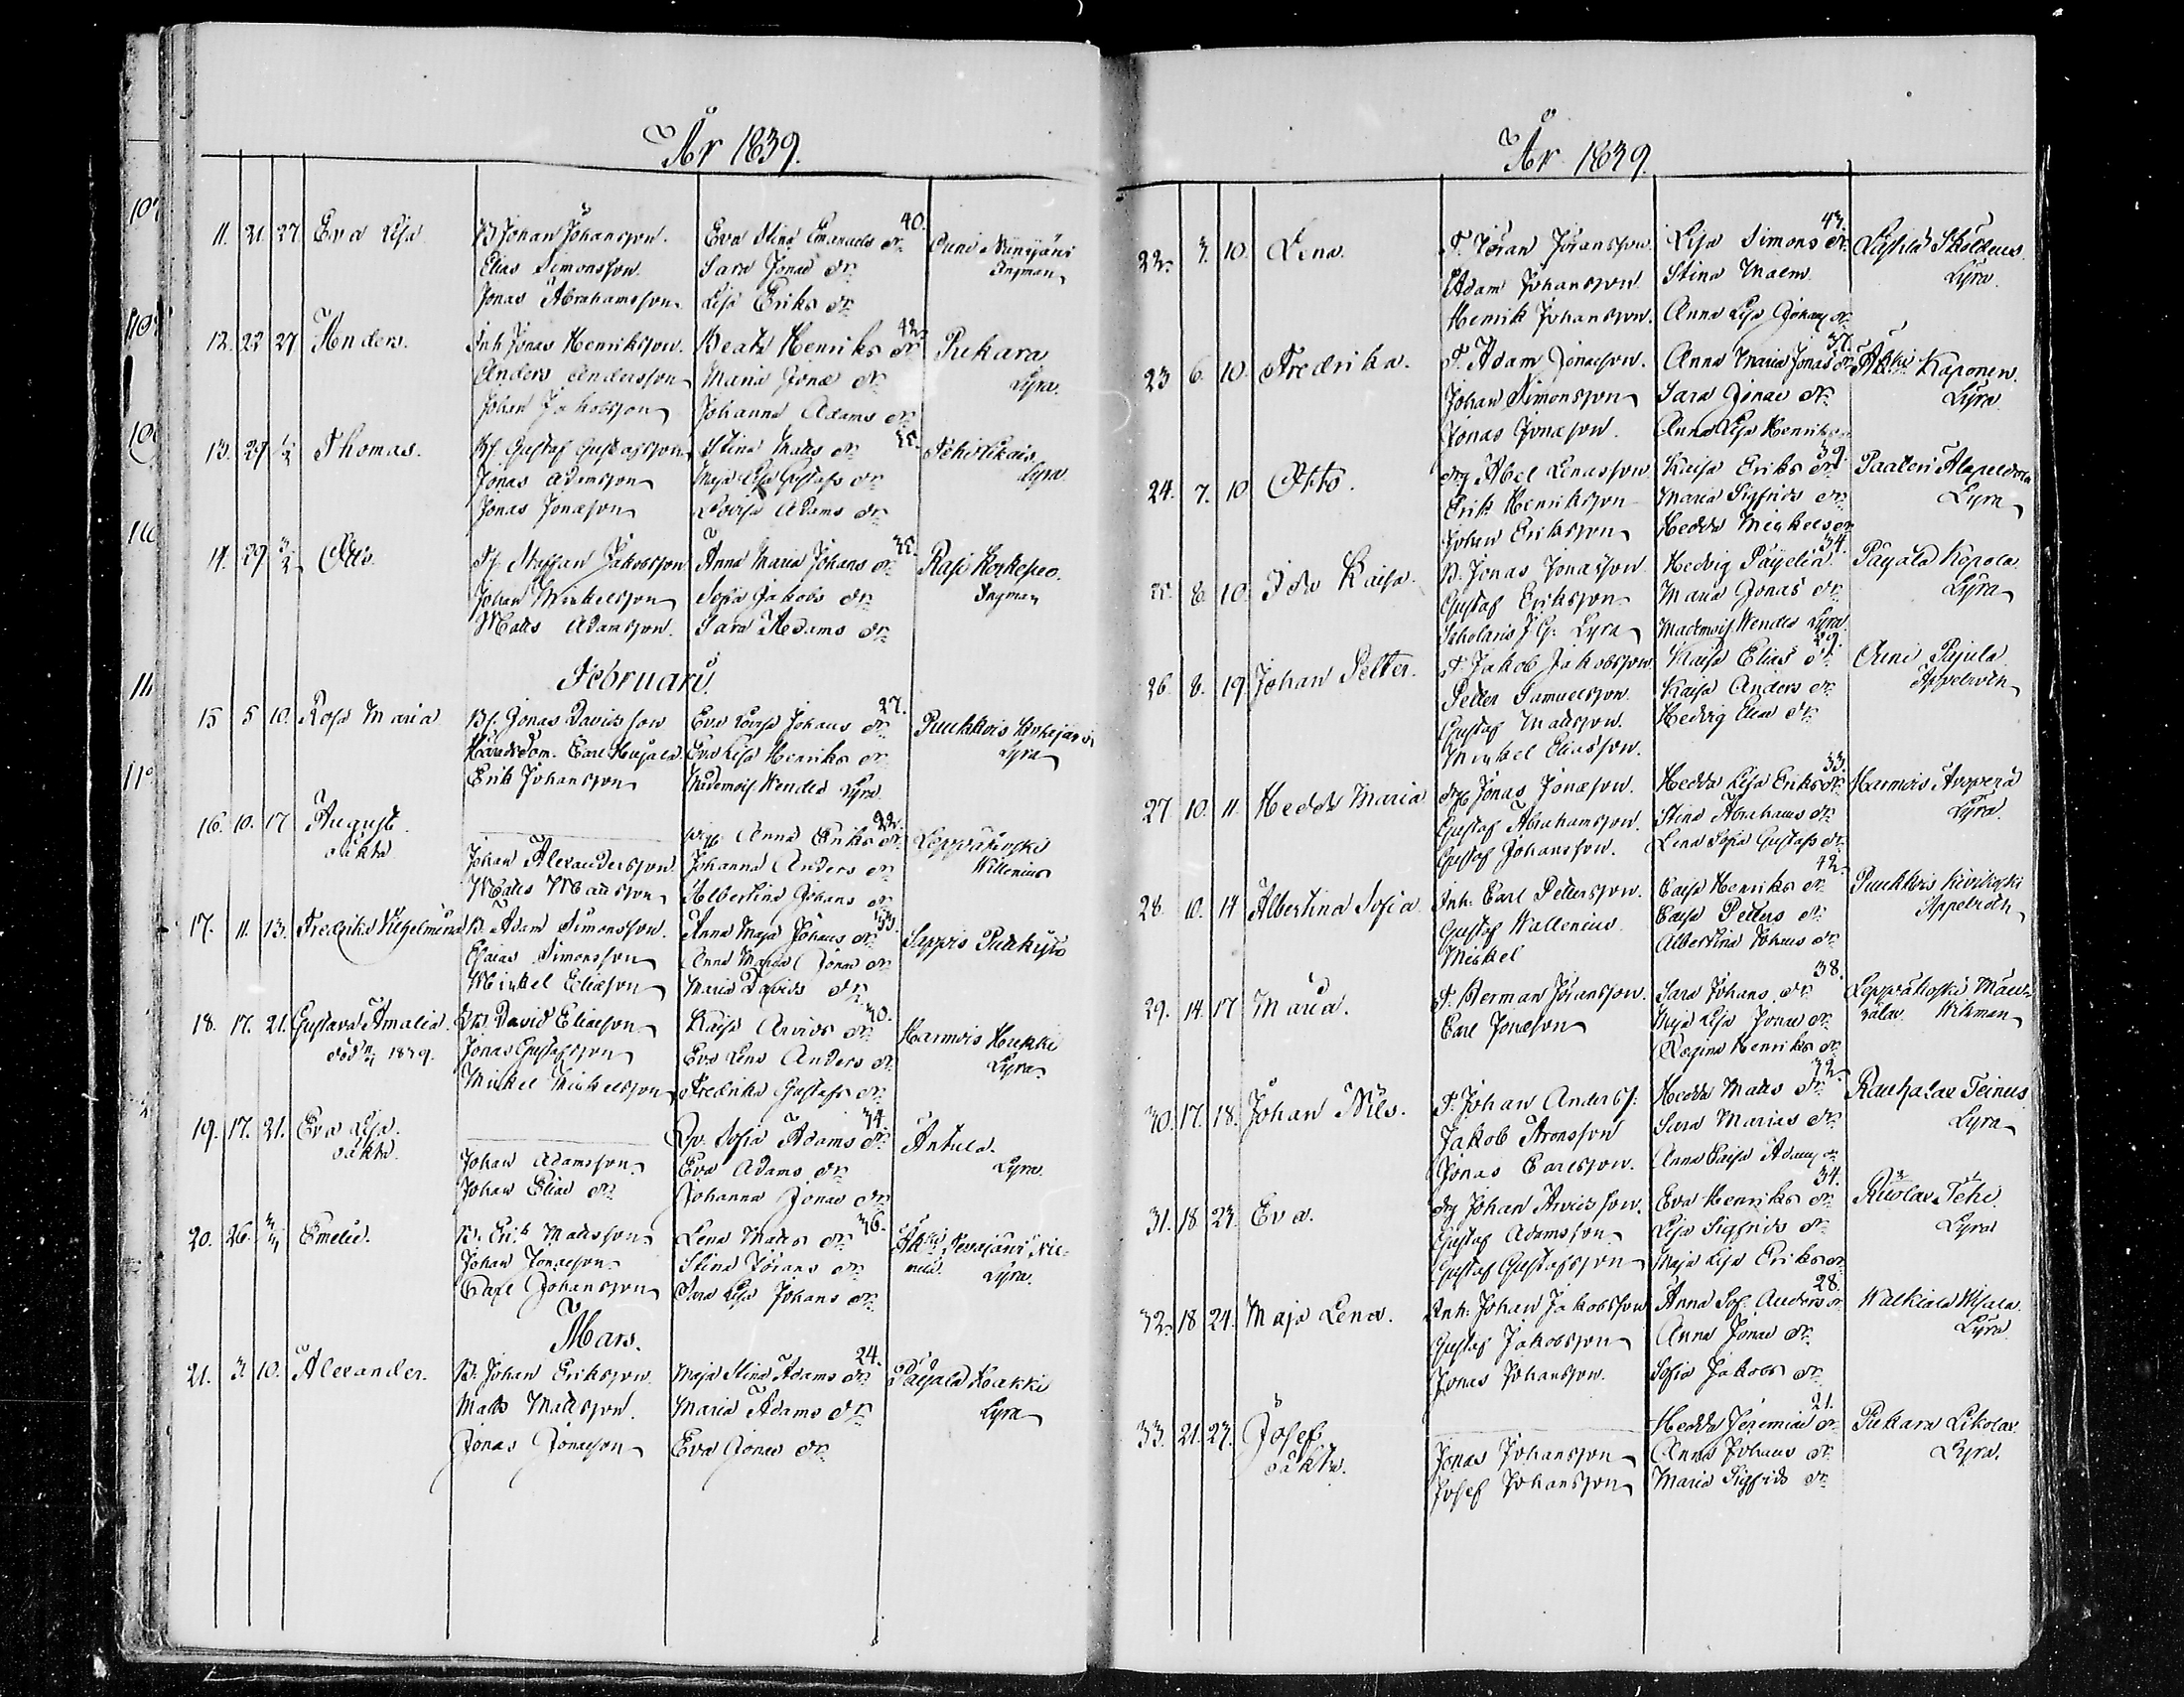 År 1839.
11. 21. 27. Eva Lisa B Johan Johansson. Eva Stina Emanuels dr. 40. Ouni
Elias Simonsson. Sara Jonae dr. Ingman
Jonas Abrahamsson Lisa Eriks dr
12. 22 27 Anders. Inh Jonas Henriksson. Beata Henriks dr 42. Pukara
Anders Andersson Maria Jonae dr. Lyra.
Johan Jakobsson Johanna Adams dr
13. 29 1/2 Thomas. Bs. Gustaf Gustafsson Stina Matts dr 35.
Jonas Adamsson Maja Lisa Gustafs dr Lyra
Jonas Jonasson Lovisa Adams dr
14. 29 3/2 Otto. Staffan Jakobsson Anna Maria Johans dr 35.
Johan Mickelsson Sofia Jakobs dr Ingman
Matts Adamsson. Sara Adams dr
Februari.
15 5 10. Rosa Maria Bs. Jonas Davidsson Eva Lovisa Johans dr 27. Punkkois
Carl Eva Lisa Henriks dr Lyra
Erik Johansson Mademois. Wendla Lyra
16. 10. 17 August Anna Eriks dr. 22. Leppäkoski
oäkta Johan Alexandersson Johanna Anders dr Willenius
Matts Mattsson Albertina Johans dr
17. 11. 13. Fredrika Vilhelmina B. Adam Simonsson. Anna Maja Johans dr 33. Seppis
Esaias Simonsson Anna Maria Jonae dr
Mickel Eliasson Maria Davids dr
18. 17. 21. Gustava Amalia. David Eliasson Kaisa Arvids dr 40. Harmois Hukki
död 1839. Jonas Gustafsson Eva Lena Anders dr Lyra
Mickel Mickelsson Fredrika Gustafs dr
19. 17. 21. Eva Lisa. Sofia Adams dr 34. Antula.
oäkta. Johan Adamsson Eva Adams dr Lyra.
Johan Eliae dr Johanna Jonae dr
20. 26. 3/3 Emelie. B. Erik Mattsson Lena Matts dr 36.
Johan Jonasson Stina Jörans dr Lyra.
Carl Johansson Sara Lisa Johans dr
Mars.
21. 3. 10. Alexander. B. Johan Eriksson. Maja Stina Adams dr. 24. Päijälä Hakki
Matts Mattsson. Maria Adams dr Lyra
Jonas Jonasson Eva Jonae dr
År 1839.
22. 3. 10. Lena. T. Jöran Jöransson. Lisa Simons dr. 43. Lästilä
Adam Johansson Stina Malm Lyra.
Henrik Johansson. Anna Lisa Johans dr
23 6. 10. Fredrika. T. Adam Jonasson. Anna Maria Jonas dr 37. Kaponen.
Johan Simonsson Sara Jonae dr Lyra
Jonas Jonasson. Anna Lisa Henriks dr
24. 7. 10 Otto. drg Abel Kaisa Eriks dr 39.
Erik Henriksson Maria Sigfrids dr Lyra
Johan Eriksson Hedda Mickels dr
25. 8. 10. Ida Kaisa. B. Jonas Jonasson Hedvig Päijelin 34. Päijälä
Gustaf Eriksson Maria Jonas dr Lyra
Scholaris J. G. Lyra Mademois. Wendla Lyra
26. 8. 19 Johan Petter. T. Jakob Jakobsson Kaisa Elias dr 29. Ouni Pajula
Petter Samuelsson. Kaisa Anders dr Appelroth
Gustaf Mattsson. Hedvig dr
Mickel Eliasson.
27 10. 11. Hedda Maria Jonas Jonasson. Hedda Lisa Eriks dr. 33. Harmois Arvpera
Gustaf Abrahamsson. Stina Abrahams dr Lyra
Gustaf Johansson. Lena Sofia Gustafs dr.
28. 10. 14 Albertina Sofia. Inh. Carl Pettersson. Caisa Henriks dr 42. Punkkois Kivikoski
Gustaf Wallenius Caisa Petters dr Appelroth
Mickel Albertina Johans dr
29. 14. 17 Maria. T. Herman Jöransson. Sara Johans dr 38. Leppäkoski
Carl Jonasson Maja Lisa Jonae dr Wikman
Regina Henriks dr
30. 17. 18. Johan Nils. T. Johan Anders s. Hedda Matts dr 32. Rauhalax
Jakob Aronsson Sara Marias dr Lyra
Jonas Carlsson. Anna Caisa Adams dr
31. 18 23. Eva. drg Johan Arvidsson. Eva Henriks dr 34. Rivolax Tehi.
Gustaf Adamsson Lisa Sigfrids dr Lyra
Gustaf Gustafsson Maja Lisa Eriks dr
32. 18 24. Maja Lena. Inh. Johan Jakobsson Anna Sof. Anders dr 28.
Gustaf Jakobsson Anna Jonae dr. Lyra.
Jonas Johansson. Sofia Jakobs dr
33. 21. 23. Josef Hedda Jeremiae dr 21. Pukara
oäkta. Jonas Johansson Anna Johans dr Lyra.
Josef Johansson Maria Sigfrids dr